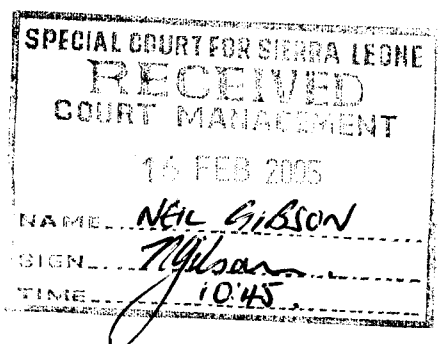 SPECIAL COURT FOR SIERRA LEONE
RECEIVED
COURT MANAGEMENT
16 FEB 2005
NAME NEIL GIBSON
SIGN NGibson
TIME 10:45.